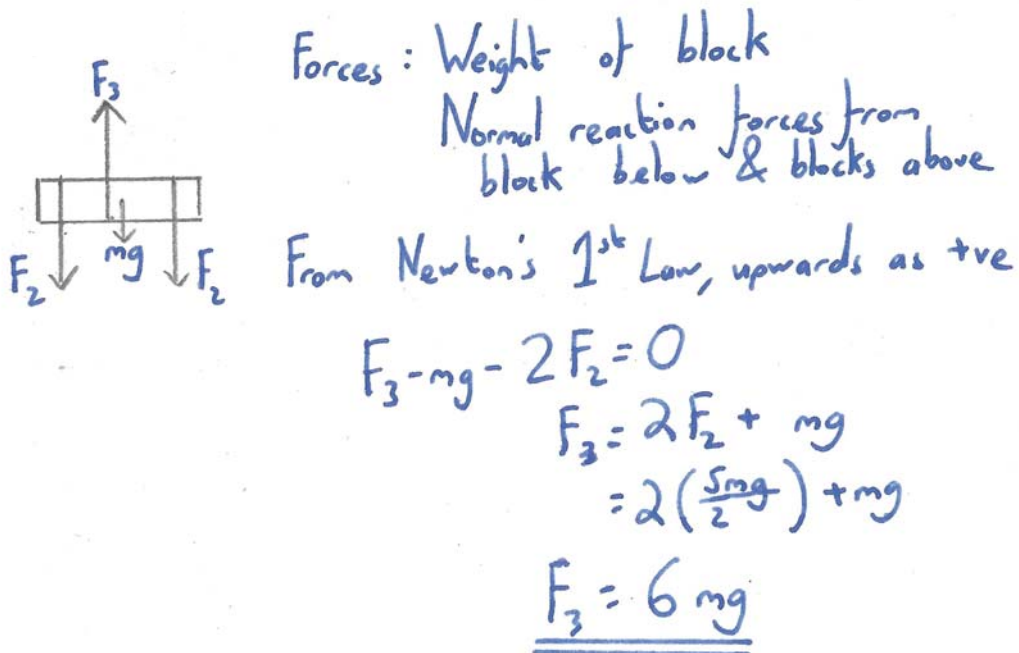 Forces : Weight of block
Normal reaction forces from
block below & blocks above
F₃
mg
F₂
F₂
From Newton's 1st Law, upwards as +ve
F₃ - mg - 2F₂ = 0
F₃ = 2F₂ + mg
= 2(5mg/2) + mg
F₃ = 6mg